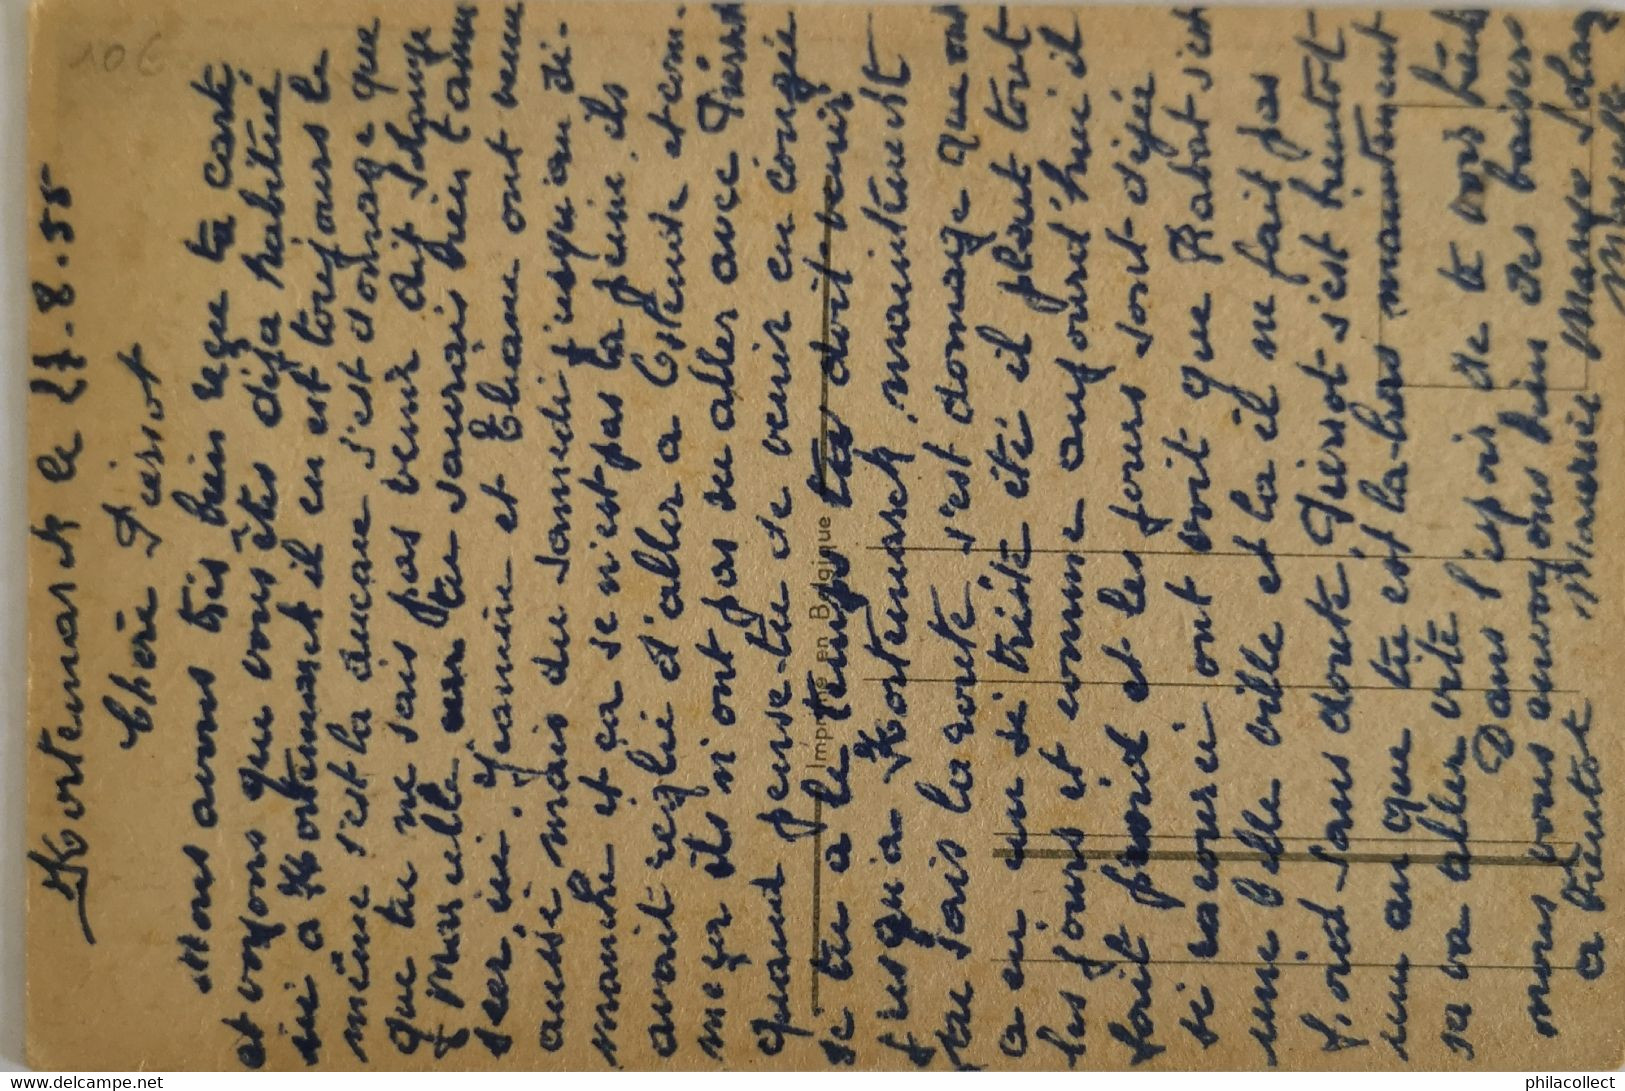 Kortemarck le 27-8-55
Chère Pierrot
Nous avons très bien reçu ta carte
et voyons que vous êtes déjà habitué
ici a Kortemarck il en est toujours le
même s'est la ducasse s'est domage que
que tu ne sais pas venir
Marcelle car tu saurais bien t'amu
ser, ici. Jeannine et Eliane ont venu
aussi mais du samedi jusqu'au di-
manche et ça se n'est pas la peine ils
avait reglié d'aller a Ostende et com-
me ça ils n'ont pas su aller avec Pierrot
quand pense-tu de venir en congée
se tu a le temps tu doit venir
jusqu'a Kortemarck maintenant
tu sais la route s'est domage que on
a eu un si triste été il pleut tout
les jours et comme aujourd'hui il
fait froid et les jours sont déjà
si racourci ont voit que Rabat s'est
une belle ville et la il ne fait pas
froid sans doute Pierrot s'est bientot
un an que tu est la-bas maintenant
sa va aller vite
Dans l'espoir de te voir bientot
nous vous envoyons bien des baisers
a bientot Maurice
10 €
Imprimé en Belgique
philacollect